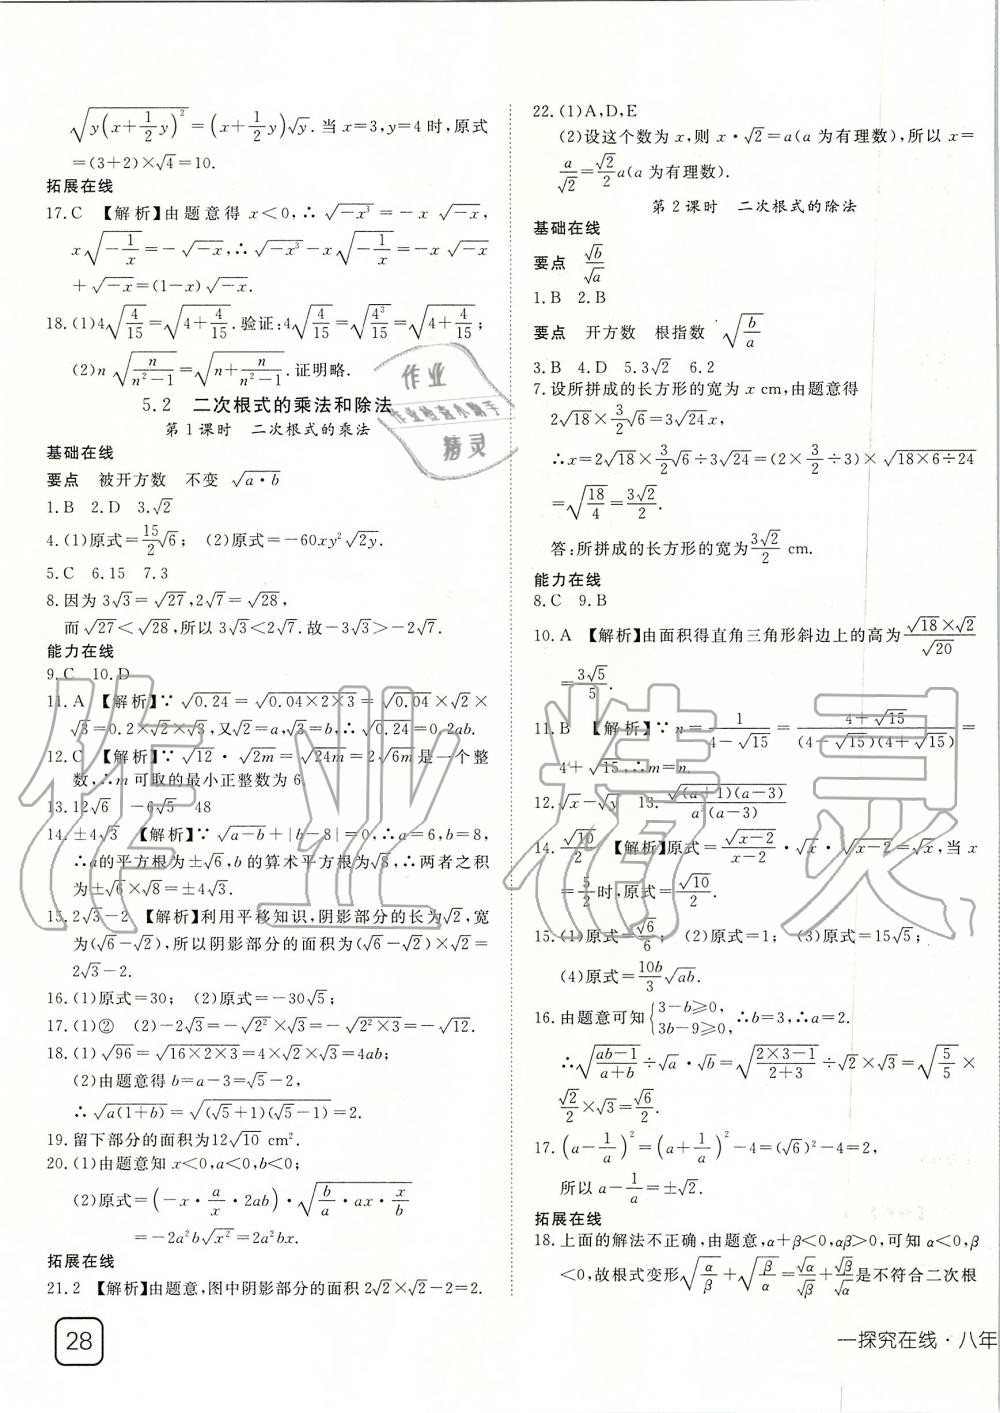 √(y(x+1/2 y)²)=(x+1/2 y)√y.当 x=3,y=4 时,原式
=(3+2)×√4=10.
拓展在线
17.C 【解析】由题意得 x<0,∴ √(-x³)=-x √(-x),
x√(-1/x)=-√(-x),∴√(-x³)-x√(-1/x)=-x√(-x)
+√(-x)=(1-x)√(-x).
18.(1)4√(4/15)=√(4+4/15).验证:4√(4/15)=√(4³/15)=√(4+4/15);
(2)n √(n/(n²-1))=√(n+n/(n²-1)).证明略.
5.2 二次根式的乘法和除法
第1课时 二次根式的乘法
基础在线
要点 被开方数 不变 √(a·b)
1.B 2.D 3.√2
4.(1)原式=15/2√6; (2)原式=-60xy²√(2y).
5.C 6.15 7.3
8.因为 3√3=√27,2√7=√28,
而√27<√28,所以 3√3<2√7.故-3√3>-2√7.
能力在线
9.C 10.D
11.A 【解析】∵ √0.24=√(0.04×2×3)=√0.04×√2×
√3=0.2×√2×√3,又√2=a,√3=b,∴√0.24=0.2ab.
12.C 【解析】∵ √12·√(2m)=√(24m)=2√(6m)是一个整
数,∴m 可取的最小正整数为 6.
13.12√6 -6√5 48
14.±4√3 【解析】∵ √(a-b)+|b-8|=0,∴a=6,b=8,
∴a的平方根为±√6,b的算术平方根为√8,∴两者之积
为±√6×√8=±4√3.
15.2√3-2 【解析】利用平移知识,阴影部分的长为√2,宽
为(√6-√2),所以阴影部分的面积为(√6-√2)×√2=
2√3-2.
16.(1)原式=30; (2)原式=-30√5;
17.(1)② (2)-2√3=-√2²×√3=-√(2²×3)=-√12.
18.(1)√96=√(16×2×3)=4×√2×√3=4ab;
(2)由题意得 b=a-3=√5-2,
∴√(a(1+b))=√((√5+1)(√5-1))=2.
19.留下部分的面积为12√10 cm².
20.(1)由题意知 x<0,a<0,b<0;
(2)原式=(-x·a/x·2ab)·√(b/a·ax·x/b)
=-2a²b√x²=2a²bx.
拓展在线
21.2 【解析】由题意,图中阴影部分的面积 2√2×√2-2=2.
28
22.(1)A,D,E
(2)设这个数为 x,则 x·√2=a(a 为有理数),所以 x=
a/√2=√2/2 a(a 为有理数).
第2课时 二次根式的除法
基础在线
要点 √b/√a
1.B 2.B
要点 开方数 根指数 √(b/a)
3.B 4.D 5.3√2 6.2
7.设所拼成的长方形的宽为 x cm,由题意得
2√18×3/2√6=3√24x,
∴x=2√18×3/2√6÷3√24=(2×3/2÷3)×√(18×6÷24)
=√(18/4)=3√2/2.
答:所拼成的长方形的宽为3√2/2 cm.
能力在线
8.C 9.B
10.A 【解析】由面积得直角三角形斜边上的高为√18×√2/√20
=3√5/5.
11.B 【解析】∵n=1/(4-√15)=(4+√15)/((4-√15)(4+√15))=
4+√15,∴m=n.
12.√x-√y 13.√((a+1)(a-3))/(a³(a-3))
14.√10/2 【解析】原式=√(x-2)/(x-2)·√x·√(x-2)=√x,当 x
=5/2时,原式=√10/2.
15.(1)原式=√6/6; (2)原式=1; (3)原式=15√5;
(4)原式=10b/3√(ab).
16.由题意可知{3-b≥0, 3b-9≥0,∴b=3,∴a=2.
∴√((ab-1)/(a+b))÷√a×√b=√((2×3-1)/(2+3))÷√2×√3=√(5/5)×
√2/2×√3=√6/2.
17.(a-1/a)²=(a+1/a)²-4=(√6)²-4=2,
所以 a-1/a=±√2.
拓展在线
18.上面的解法不正确,由题意,α+β<0,αβ>0,可知 α<0,β
<0,故根式变形√(α/β)+√(β/α)=√α/√β+√β/√α是不符合二次根
—探究在线·八年
作业
作业检查小助手
精灵
作业精灵